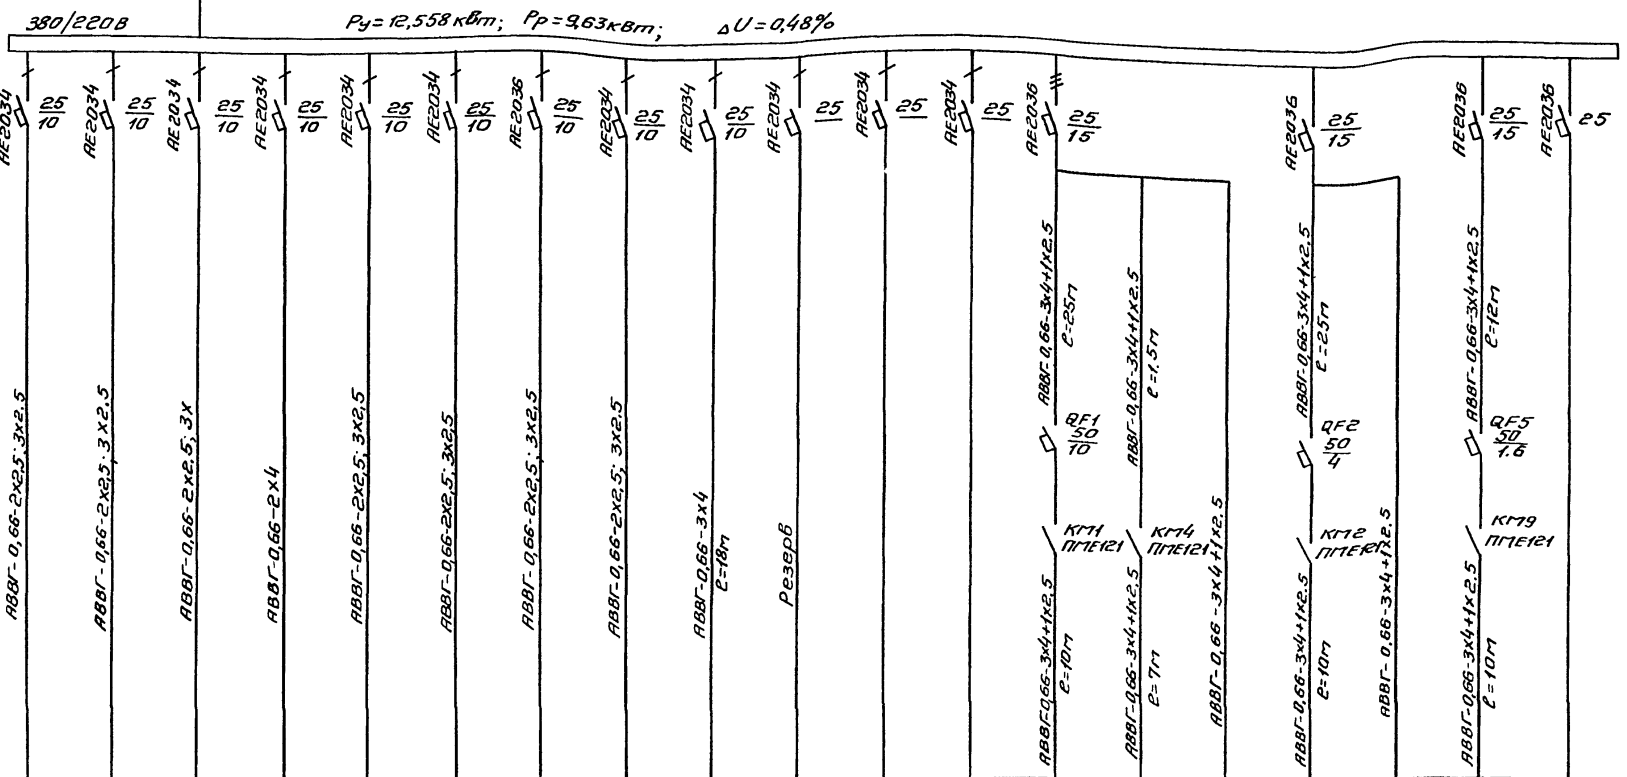 380/220В
Ру=12,558 кВт; Рр=9,63 кВт; ΔU=0,48%
АЕ2034
25
10
АЕ2034
25
10
АЕ2034
25
10
АЕ2034
25
10
АЕ2034
25
10
АЕ2034
25
10
АЕ2036
25
10
АЕ2034
25
10
АЕ2034
25
10
АЕ2034
25
АЕ2034
25
АЕ2034
25
АЕ2036
25
15
АЕ2036
25
15
АЕ2036
25
15
АЕ2036
25
АВВГ-0,66-2х2,5; 3х2,5
АВВГ-0,66-2х2,5; 3х2,5
АВВГ-0,66-2х2,5; 3х
АВВГ-0,66-2х4
АВВГ-0,66-2х2,5; 3х2,5
АВВГ-0,66-2х2,5; 3х2,5
АВВГ-0,66-2х2,5; 3х2,5
АВВГ-0,66-2х2,5; 3х2,5
АВВГ-0,66-3х4
ℓ=18м
Резерв
АВВГ-0,66-3х4+1х2,5
ℓ=25м
QF1
50
10
КМ1
ПМЕ121
АВВГ-0,66-3х4+1х2,5
ℓ=10м
АВВГ-0,66-3х4+1х2,5
ℓ=1.5м
КМ4
ПМЕ121
АВВГ-0,66-3х4+1х2,5
ℓ=7м
АВВГ-0,66-3х4+1х2.5
АВВГ-0,66-3х4+1х2,5
ℓ=25м
QF2
50
4
КМ2
ПМЕ121
АВВГ-0,66-3х4+1х2.5
ℓ=10м
АВВГ-0,66-3х4+1х2.5
АВВГ-0,66-3х4+1х2,5
ℓ=12м
QF5
50
1.6
КМ9
ПМЕ121
АВВГ-0,66-3х4+1х2,5
ℓ=10м